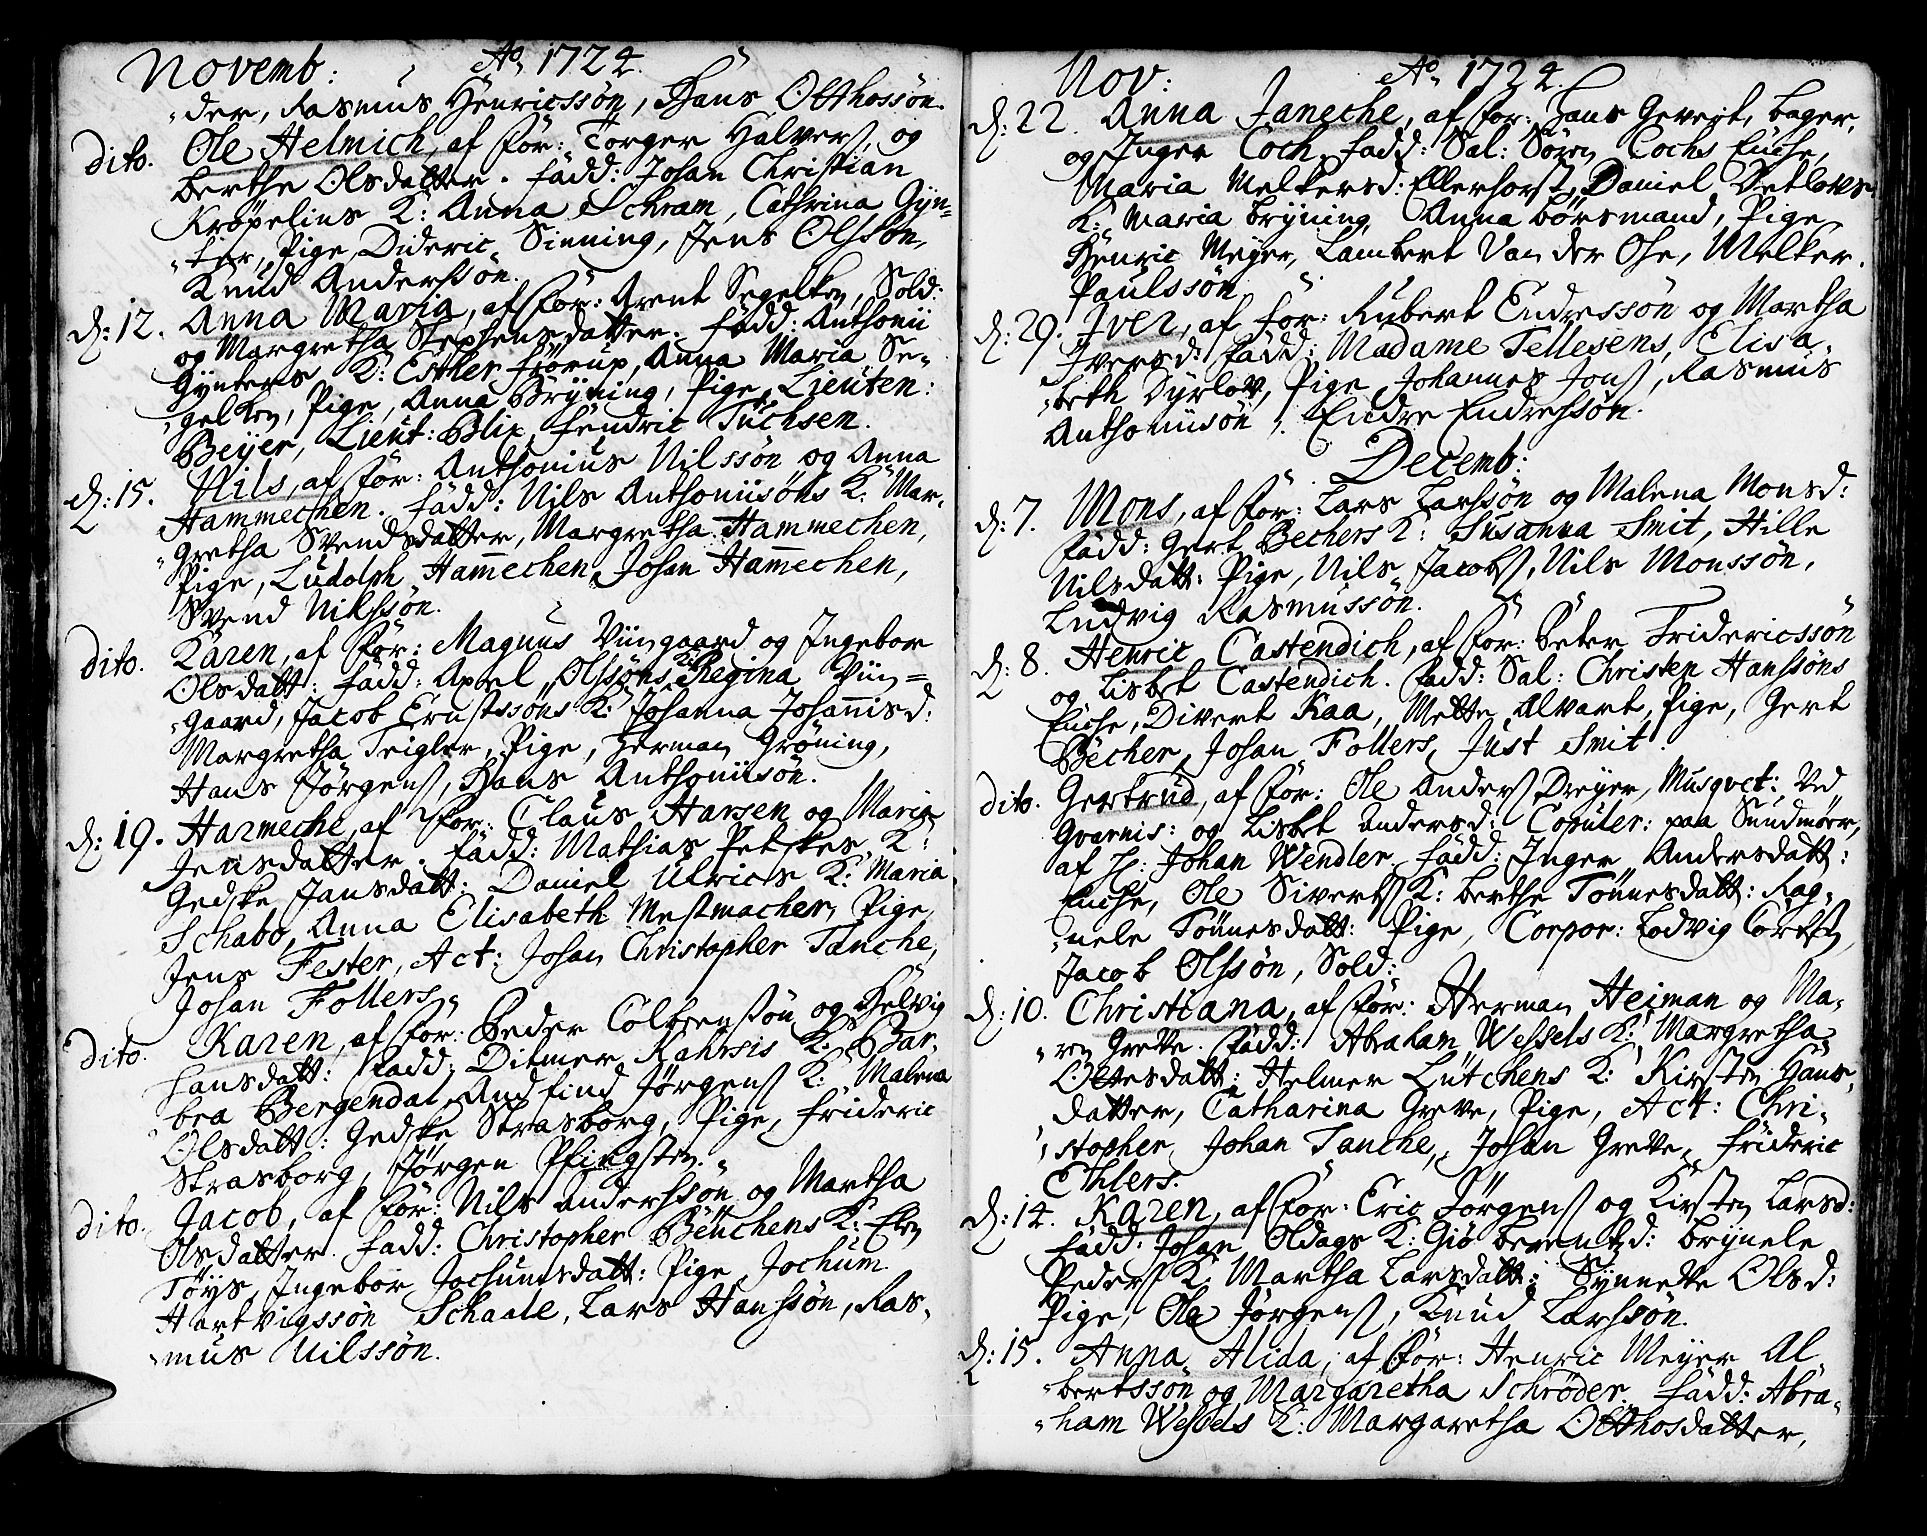 Novemb: Aº 1724.
der, Rasmus Henricssön, Hans Otthossön.
dito. Ole Helmich, af for: Torger Halvers. og
berthe Olsdatter. fadd: Johan Christian
Kröpelins K: Anna Schram, Cathrina Gyn=
ter, Pige, Dideric Sinning, Jens Olssön,
Knud Anderssön.
d: 12. Anna Maria, af for: Arent Segelken, Sold:
og Margretha Stephensdatter. fadd: Anthonii
Gynters K: Esther förup, Anna Maria Se-
gelken, Pige, Anna Bryning, Pige, Lieuten:
Beyer, Lieut: Blix, fendric Tuchsen.
d: 15. Nils, af for: Anthonius Nilssön og Anna
Hammechen. fadd: Nils Anthoniisöns K: Mar-
gretha Svendsdatter, Margretha Hammechen,
Pige, Ludolph Hamechen, Johan Hamechen,
Svend Nilssön.
dito. Karen, af for: Magnus Viingaard og Ingebor
Olsdatt: fadd: Axel Olssöns K: Regina Viin=
gaard, Jacob Ernstssöns K: Johanna Johannisd:
Margretha Teigler, Pige, Herman Gröning,
Hans Jörgens. Hans Anthoniisön.
d: 19. Harmeche, af for: Claus Harsen og Maria
Jensdatter. fadd: Mathias Petskes K:
Gedske Jansdatt: Daniel Ulrics K: Maria
Schabo, Anna Elisabeth Mestmacher, Pige,
Jens Fester, Act: Johan Christopher Tanche,
Johan Follers.
dito. Karen, af for: Peder Colbensön og Helvig
Hansdatt: fadd: Ditmer Kahrsis K: Bar-
bra Bergendal, Andfind Jörgens. K: Malena
Olsdatt: Gedske Strasborg, Pige, frideric
Strasborg, Jörgen Pfingsten.
dito. Jacob, af for: Nils Anderssön og Martha
Olsdatter. fadd: Christopher Beuchens K: Elen
Töys, Ingebor Jochumsdatt: Pige, Jochum
Hartvigssön Schaale, Lars Hanssön, Ras-
mus Nilssön.
Nov: Aº 1724.
d: 22. Anna Janeche, af for: Hans Gevert, bager,
og Inger Coch. fadd: Sal: Sören Cochs Enche,
Maria Melkersd: Ellerhorst, Daniel Detloves
K: Maria bryning, Anna börsmand, Pige,
Henric Meyer, Lambert Van der Ohe, Melker
Paulssön.
d: 29. Iver, af for: Rubert Endressön og Martha
Iversd: fadd: Madame Tellesens, Elisa-
beth Dyrlov, Pige, Johannes Jons. Rasmus
Anthoniisön, Endre Endressön.
Decemb:
d: 7. Mons, af for: Lars Larssön og Malena Monsd:
fadd: Gert Bechers K: Susanna Smit, Hille
Nilsdatt: Pige, Nils Jacobs. Nils Monssön,
Ludvig Rasmussön.
d: 8. Henric Castendich, af for: Peter Fridericssön
og Lisbet Castendich. fadd: Sal: Christen Hanssöns
Enche, Divert Kaa, Mette Alvart, Pige, Gert
Becher, Johan Follers, Just Smit.
dito. Gertrud, af for: Ole Anders. Dreyer, Musqvet: Ved
Gvarnis: og Lisbet Andersd: Copuler: paa Sundmöer,
af H: Johan Wendler. fadd: Inger Andersdatt:
Enche, Ole Siverts. K: berthe Tönnesdatt: Rag-
nele Tönnesdatt: Pige, Corpor: Lodvig Corts.
Jacob Olssön, Sold:
d: 10. Christiana, af for: Herman Heiman og Ma-
ren Greve. fadd: Abraham Wessels K: Margretha
Ottesdatt: Helmer Lütchens K: Kirsten Hans-
datter, Catharina Greve, Pige, Act: Chri-
stopher Johan Tanche, Johan Greve, frideric
Ehlers.
d: 14. Karen, af for: Eric Jörgens. og Kirsten Larsd:
fadd: Johan Oldags K: Giö berentsd: brynele
Peders. K: Martha Larsdatt: Synneve Olsd:
Pige, Ole Jörgens. Knud Larssön.
d: 15. Anna Alida, af for: Henric Meyer Al-
bertssön og Margaretha Schröder. fadd: Abra-
ham Wessels K: Margaretha Otthosdatter,